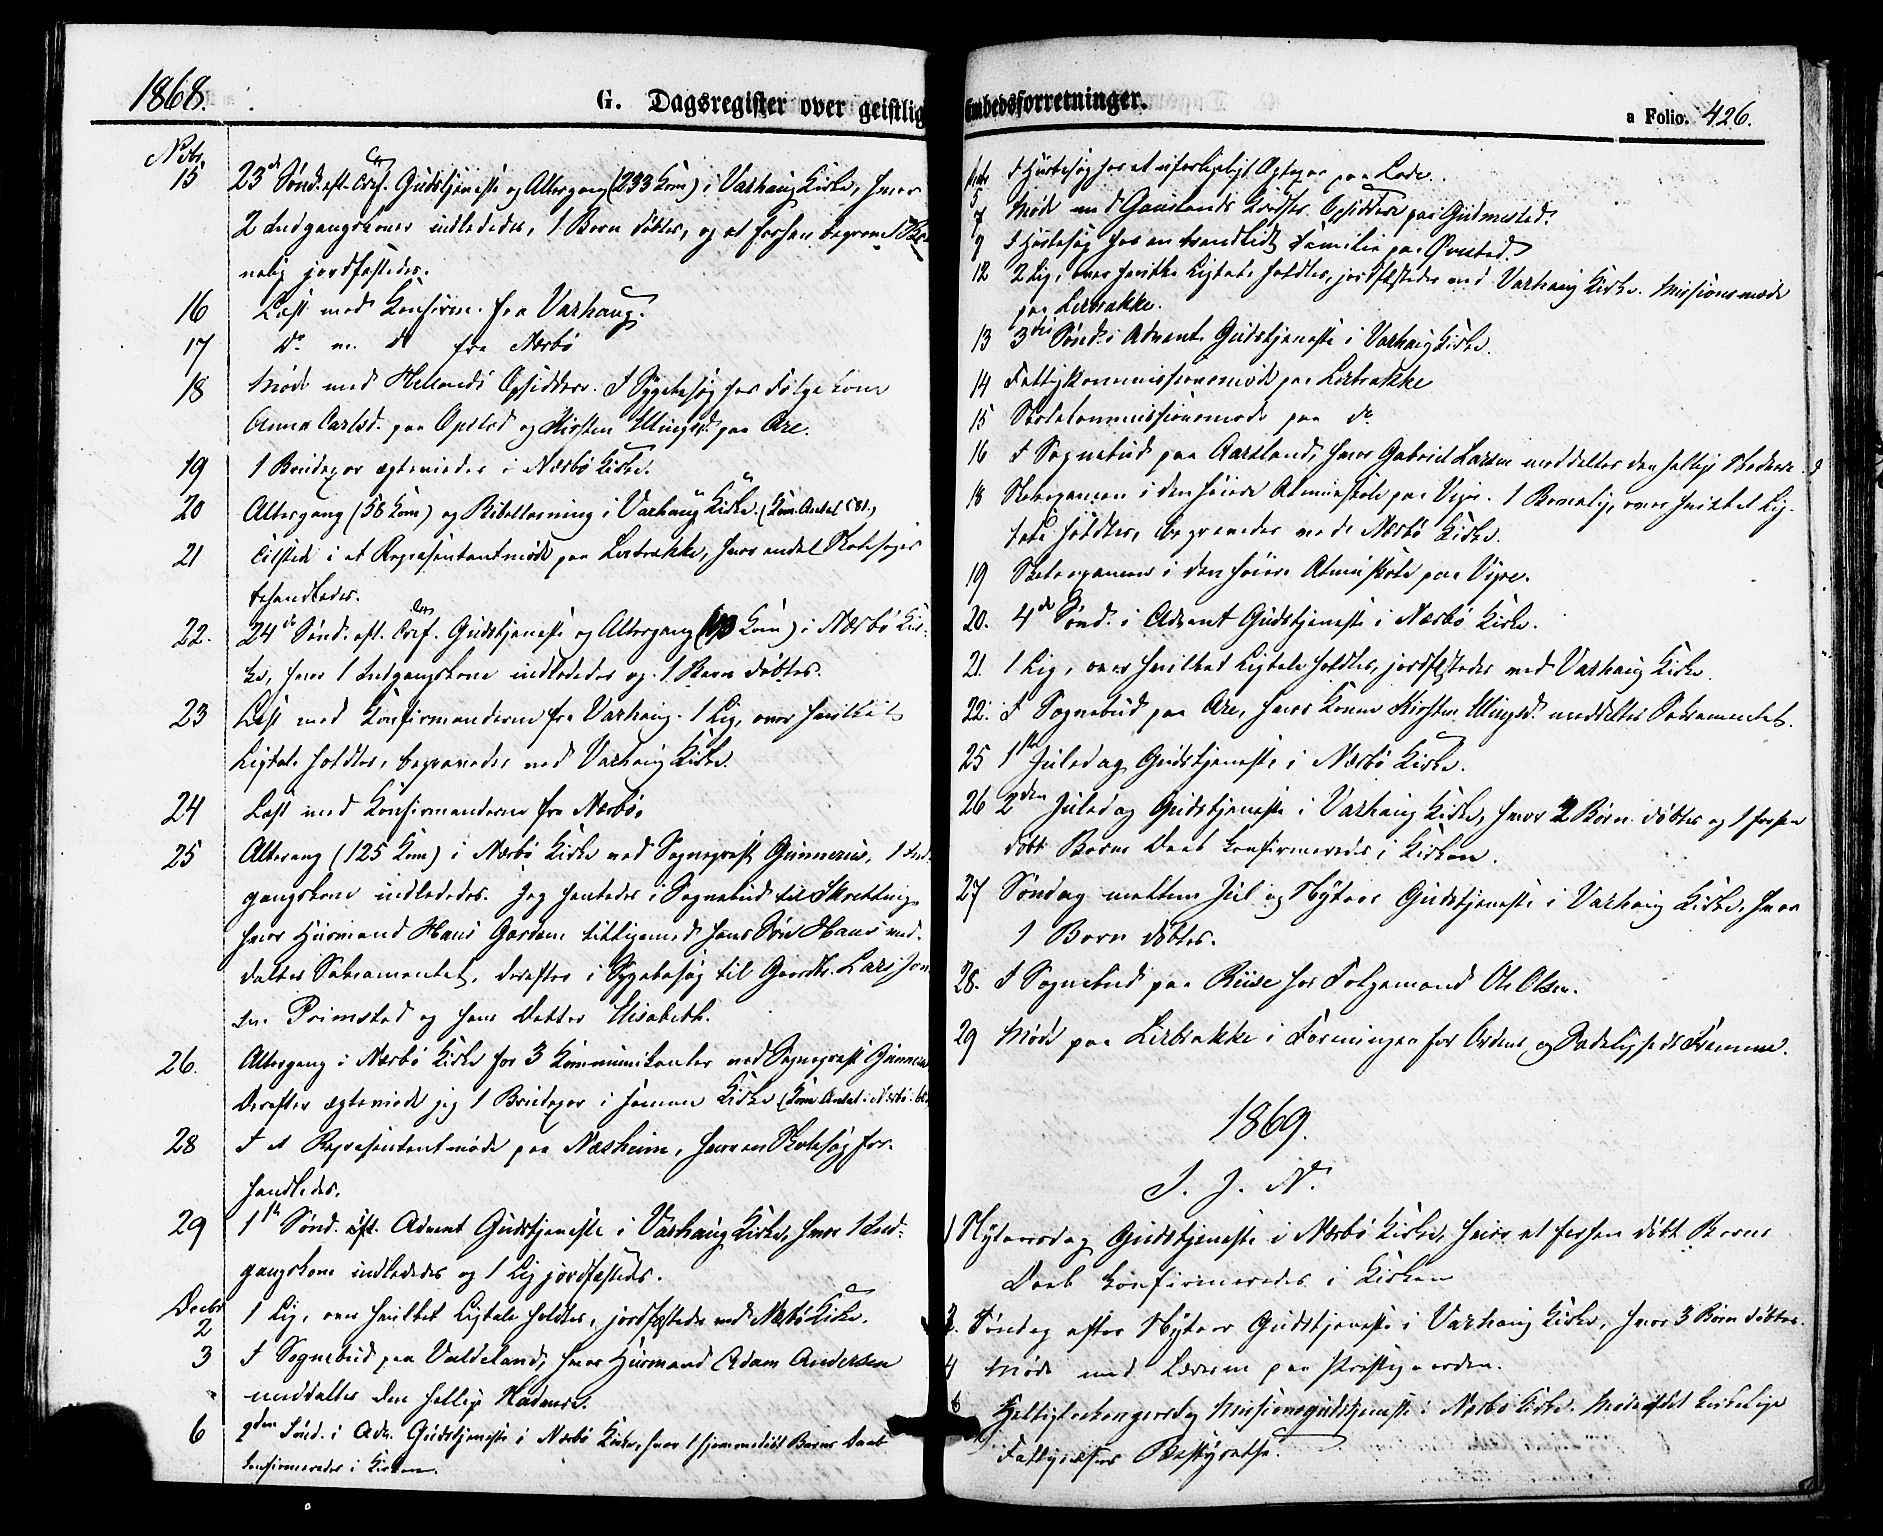 1868.
G. Dagsregister over geistlig
Nvbr.
15 23de Sønd. eft. Tref. Gudstjeneste og Altergang (233 Kom) i Varhaug Kirke, hvor
2 Indgangskoner indlededes, 1 Barn døbtes, og et forhen begravet
jordfæstedes.
16 Læst med Konfirm. fra Varhaug.
17 Do m. do fra Nærbø
18 Møde med Opsiddere. I Sygebesøg hos Følgekone
Anna Carlsd. paa Opstad og Kirsten paa Are.
19 1 Brudepar ægteviedes i Nærbø Kirke.
20 Altergang (58 Kom) og Bibellæsning i Varhaug Kirke.
21 Tilsted i et Repræsentantmøde paa Lerbrække, hvor endel Skolesager
behandledes.
22. 24de Sønd. eft. Tref. Gudstjeneste og Altergang i Nærbø Kir-
ke, hvor 1 Indgangskone indlededes og 1 Barn døbtes.
23 Læst med Konfirmanderne fra Varhaug. 1 Lig, over hvilket
Ligtale holdtes, begravedes ved Varhaug Kirke.
24 Læst med Konfirmanderne fra Nærbø.
25 Altergang (125 Kom) i Nærbø Kirke ved Sognepræst Gunnerus, 1 Ind-
gangskone indlededes. Jeg hentedes i Sognebud til Skretting,
hvor Husmand Hans tilligemed hans Søn Hans med-
deltes Sakramentet, derefter i Sygebesøg til Gaardbr. Lars
Primstad og hans Datter Elisabeth.
26. Altergang i Nærbø Kirke for 3 Kommunikanter ved Sognepræst
Derefter ægteviede jeg 1 Brudepar i samme Kirke
28 I et Repræsentantmøde paa Næsheim, hvor en Skolesag for-
handledes.
29 1ste Sønd. Advent Gudstjeneste i Varhaug Kirke, hvor 1 Ind-
gangskone indlededes og 1 Lig jordfæstedes.
Decbr
2 1 Lig, over hvilket Ligtale holdtes, jordfæstedes ved Nærbø Kirke.
3 I Sognebud paa Valdeland, hvor Husmand Adam Andersen
meddeltes den hellige Nadvere.
6 2den Sønd. i Adv. Gudstjeneste i Nærbø Kirke, hvor 1 hjemmedøbt Barns Daab
konfirmeredes i Kirken.
Embedsforretninger.
a Folio. 426.
5 I Husbesøg hos et uforligeligt Ægtepar paa Lode.
7 Møde med Opsiddere paa Gudmestad.
9 I Husbesøg hos en Familie paa
12 2 Lig, over hvilke Ligtale holdtes, jordfæstedes ved Varhaug Kirke. Missionsmøde
paa Lerbrække.
13 3die Sønd. i Advent Gudstjeneste i Varhaug Kirke.
14 Fattigkommissionsmøde paa Lerbrække
15 Skolekommissionsmøde paa do
16 I Sognebud paa Aarsland, hvor Gabriel Larsen meddeltes den hellige Nadvere.
18 Skoleexamen i den høiere Almueskole paa Vigre. 1 Barnelig, over hvilket Lig-
tale holdtes, begravedes ved Nærbø Kirke.
19 Skoleexamen i den høiere Almueskole paa Vigre.
20. 4de Sønd. i Advent Gudstjeneste i Nærbø Kirke.
21. 1 Lig, over hvilket Ligtale holdtes, jordfæstedes ved Varhaug Kirke.
22. I Sognebud paa Are, hvor Konen Kirsten meddeltes Sakramentet.
25 1ste Juledag Gudstjeneste i Nærbø Kirke.
26 2den Juledag Gudstjeneste i Varhaug Kirke, hvor 2 Børn døbtes og 1 forhen
døbt Barns Daab konfirmeredes i Kirken.
27 Søndag mellem Jul og Nytaar Gudstjeneste i Varhaug Kirke, hvor
1 Barn døbtes.
28. I Sognebud paa Riise hos Følgemand Ole Olsen.
29 Møde paa Lerbrække i Foreningen for Ordens og Sædeligheds Fremme.
1869.
I. J. N.
1 Nytaarsdag Gudstjeneste i Nærbø Kirke, hvor et forhen døbt Barns
Daab konfirmeredes i Kirken
3. Søndag efter Nytaar Gudstjeneste i Varhaug Kirke, hvor 3 Børn døbtes.
4 Møde med Lærerne paa Præstegaarden.
6 Helligtrekongersdag Missionsgudstjeneste i Nærbø Kirke. Møde i det kirkelige
Fattigvæsens Bestyrelse.